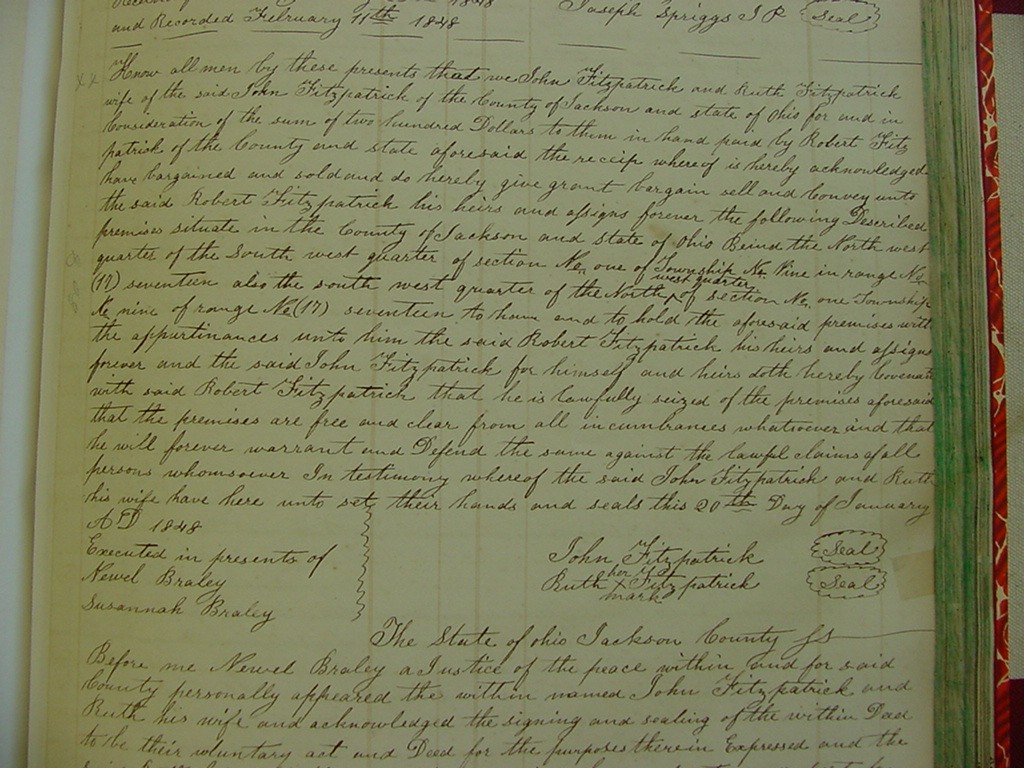 1848
and Recorded February 11th 1848
Joseph Spriggs J P
Seal
Know all men by these presents that we John Fitzpatrick and Ruth Fitzpatrick
wife of the said John Fitzpatrick of the County of Jackson and state of Ohio for and in
Consideration of the sum of two hundred Dollars to them in hand paid by Robert Fitz
patrick of the County and state aforesaid the receip whereof is hereby acknowledged
have bargained and sold and do hereby give grant bargain sell and Convey unto
the said Robert Fitzpatrick his heirs and assigns forever the following Described
premises situate in the County of Jackson and state of Ohio Beind the North west
quarter of the South west quarter of section No one of Township No Nine in range No
(17) seventeen also the south west quarter of the North west quarter of section No one Township
No nine of range No (17) seventeen to have and to hold the aforesaid premises with
the appurtinances unto him the said Robert Fitzpatrick his heirs and assigns
forever and the said John Fitzpatrick for himself and heirs doth hereby Covenant
with said Robert Fitzpatrick that he is lawfully seized of the premises aforesaid
that the premises are free and clear from all incumbrances whatsoever and that
he will forever warrant and Defend the same against the lawful claims of all
persons whomsoever In testimony whereof the said John Fitzpatrick and Ruth
his wife have here unto set their hands and seals this 20th Day of January
A D 1848
Executed in presents of
Newel Braley
Susannah Braley
John Fitzpatrick Seal
Ruth her X mark Fitzpatrick Seal
The State of Ohio Jackson County SS
Before me Newel Braley a Justice of the peace within and for said
County personally appeared the within named John Fitzpatrick and
Ruth his wife and acknowledged the signing and sealing of the within Deed
to be their voluntary act and Deed for the purposes therein Expressed and the